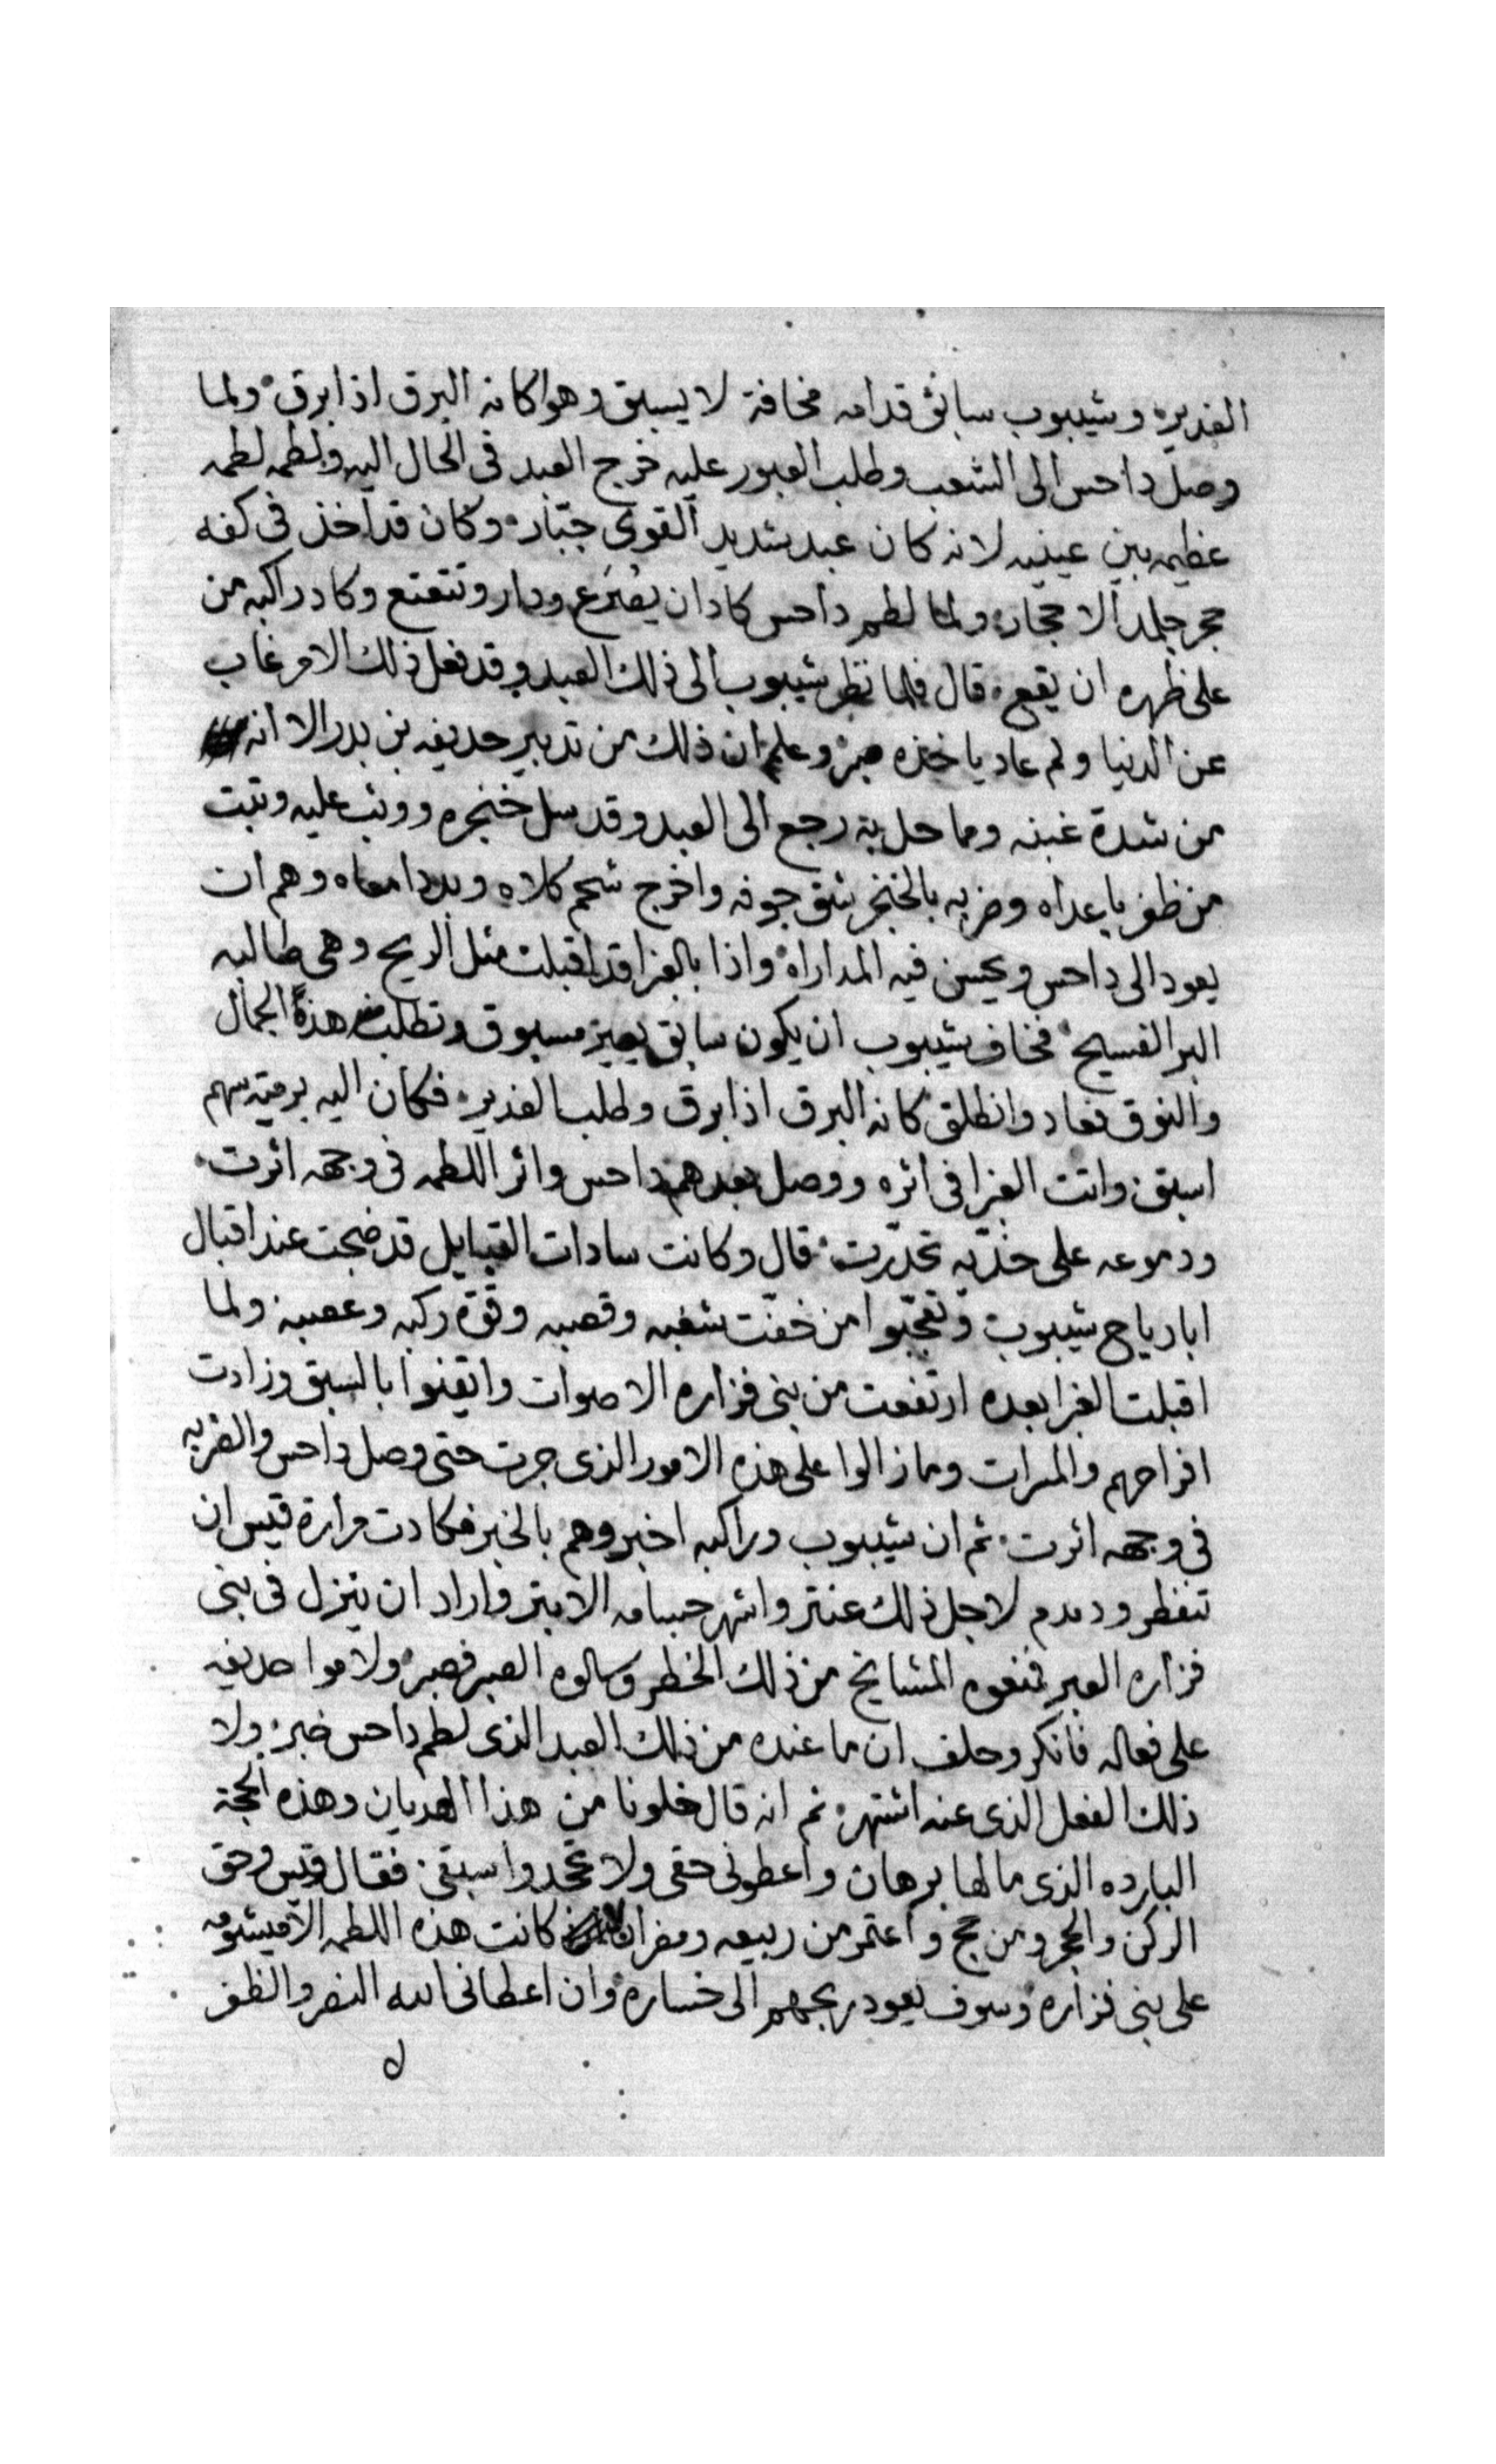 الغدير وشيبوب سابق قدامه مخافة لا يسبق وهوا كانه البرق اذا برق ولما
وصل داحس الى الشعب وطلب العبور عليه خرج العبد فى الحال اليه ولطمه لطمه
عظيمه بين عينيه لانه كان عبد شديد القوى جبّار وكان قد اخذ فى كفه
حجر جلمد الاحجار ولما لطم داحس كاد ان يصرع ودار وتتعتع وكاد راكبه من
على ظهره ان يقع قال فلما نظر شيبوب الى ذلك العبد وقد فعل ذلك الامر غاب
عن الدنيا ولم عاد ياخذه صبر وعلم ان ذلك من تدبير حديفه بن بدر الا انه
من شدة غبنه وما حل به رجع الى العبد وقد سل خنجره ووثب عليه وثبت
من ظفر باعداه وضربه بالخنجر شق جوفه واخرج شحم كلاه وبدد امعاه وهم ان
يعود الى داحس ويحسن فيه المداراة واذا بالغبرا قد اقبلت مثل الريح وهى طالبه
البر الفسيح فخاف شيبوب ان يكون سابق يصير مسبوق وتطلب هذه الجمال
والنوق فعاد وانطلق كانه البرق اذا برق وطلب الغدير فكان اليه برميته سهم
اسبق واتت الغبرا فى اثره ووصل بعدهم داحس واثر اللطمه فى وجهه اثرت
ودموعه على خدّيه تحدّرت قال وكانت سادات القبايل قد ضجت عند اقبال
ابا رياح شيبوب وتعجّبوا من خفّت شغبه وقصبه وقوّة ركبه وعصبه ولما
اقبلت الغبرا بعده ارتفعت من بنى فزاره الاصوات وايقنوا بالسبق وزادت
افراحهم والمسرات وما زالوا على هذه الامور الذى جرت حتى وصل داحس والضربه
فى وجهه اثرت ثم ان شيبوب وراكبه اخبروهم بالخبر فكادت مرارة قيس ان
تنفطر ودمدم لاجل ذلك عنتر واشهر حسامه الابتر واراد ان ينزل فى بنى
فزاره العبر فمنعوه المشايخ من ذلك الخطر وسالوه الصبر فصبر ولاموا حديفه
على فعاله فانكر وحلف ان ما عنده من ذلك العبد الذى لطم داحس خبر ولا
ذلك الفعل الذى عنه اشتهر ثم انه قال خلونا من هذا الهديان وهذه الحجة
البارده الذى ما لها برهان واعطونى حقى ولا تجحدوا سبقى فقال قيس وحق
الركن والحجر ومن حج واعتمر من ربيعه ومضر ان كانت هذه اللطمه الا ميشومه
على بنى فزاره وسوف يعود ربحهم الى خساره وان اعطانى الله النصر والظفر